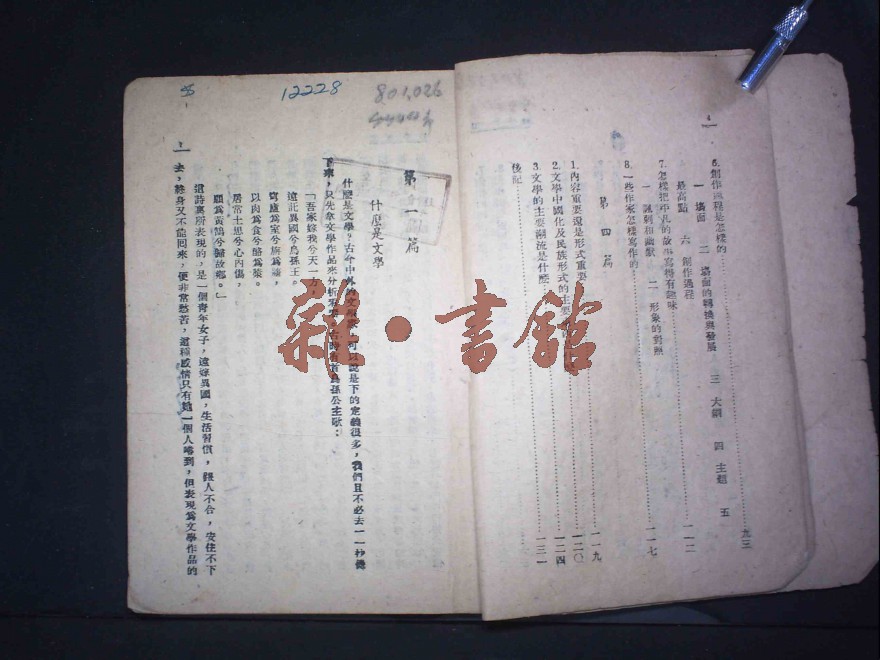 4
6. 創作過程是怎樣的……九三
一 場面 二 場面的轉換與發展 三 大綱 四 主題 五
最高點 六 創作過程
7. 怎樣把平凡的故事寫得有趣味……一一二
一 諷刺和幽默 二 形象的對照
8. 一些作家怎樣寫作的……一一七
第四篇
1. 內容重要還是形式重要……一一九
2. 文學中國化及民族形式的主要……一二〇
3. 文學的主要潮流是什麼……一二四
後記……一三一
12228
801.026
第一篇
什麼是文學
什麼是文學?古今中外的文學家,可以說是下的定義很多,我們且不必去一一抄襲
下來,只先拿文學作品來分析
烏孫公主歌:
「吾家嫁我兮天一方,
遠託異國兮烏孫王。
穹廬為室兮旃為牆,
以肉為食兮酪為漿。
居常土思兮心內傷,
願為黃鵠兮歸故鄉。」
這詩裏所表現的,是一個青年女子,遠嫁異國,生活習慣,跟人不合,安住不下
去,終身又不能回來,便非常愁苦,這種感情只有她一個人嘗到,但表現為文學作品的
1
雜·書館